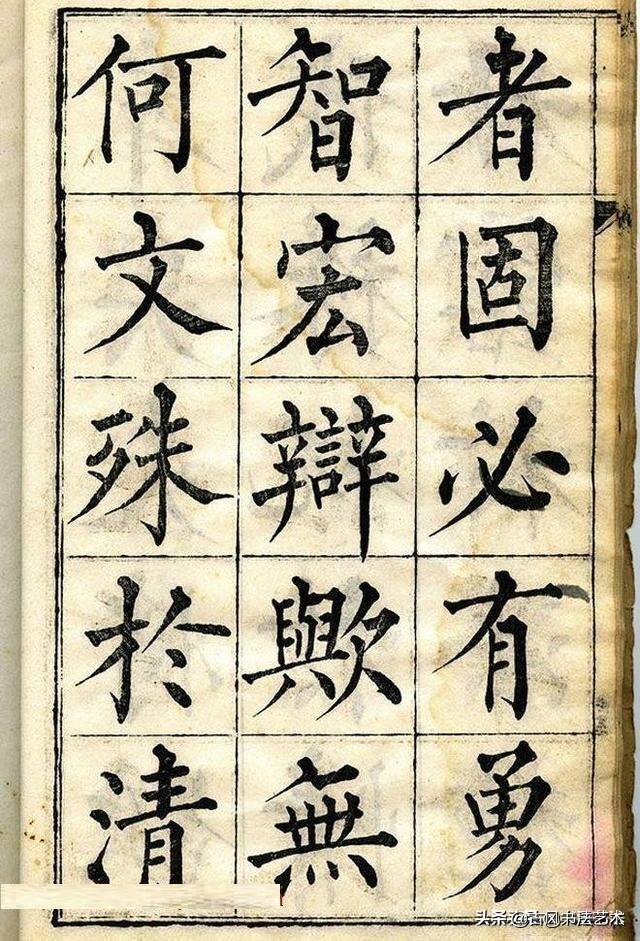 者固必有勇
智宏辯歟無
何文殊於清
头条@古冈书法艺术